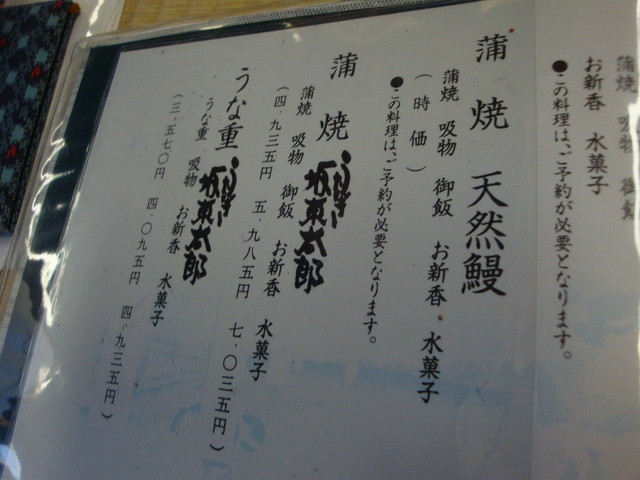 蒲焼 吸物 御飯
お新香 水菓子
●この料理は、ご予約が必要となります。
蒲焼 天然鰻
蒲焼 吸物 御飯 お新香 水菓子
(時価)
●この料理は、ご予約が必要となります。
蒲焼 坂東太郎
蒲焼 吸物 御飯 お新香 水菓子
(四、九三五円 五、九八五円 七、〇三五円)
うな重 坂東太郎
うな重 吸物 お新香 水菓子
(三、五七〇円 四、〇九五円 四、九三五円)